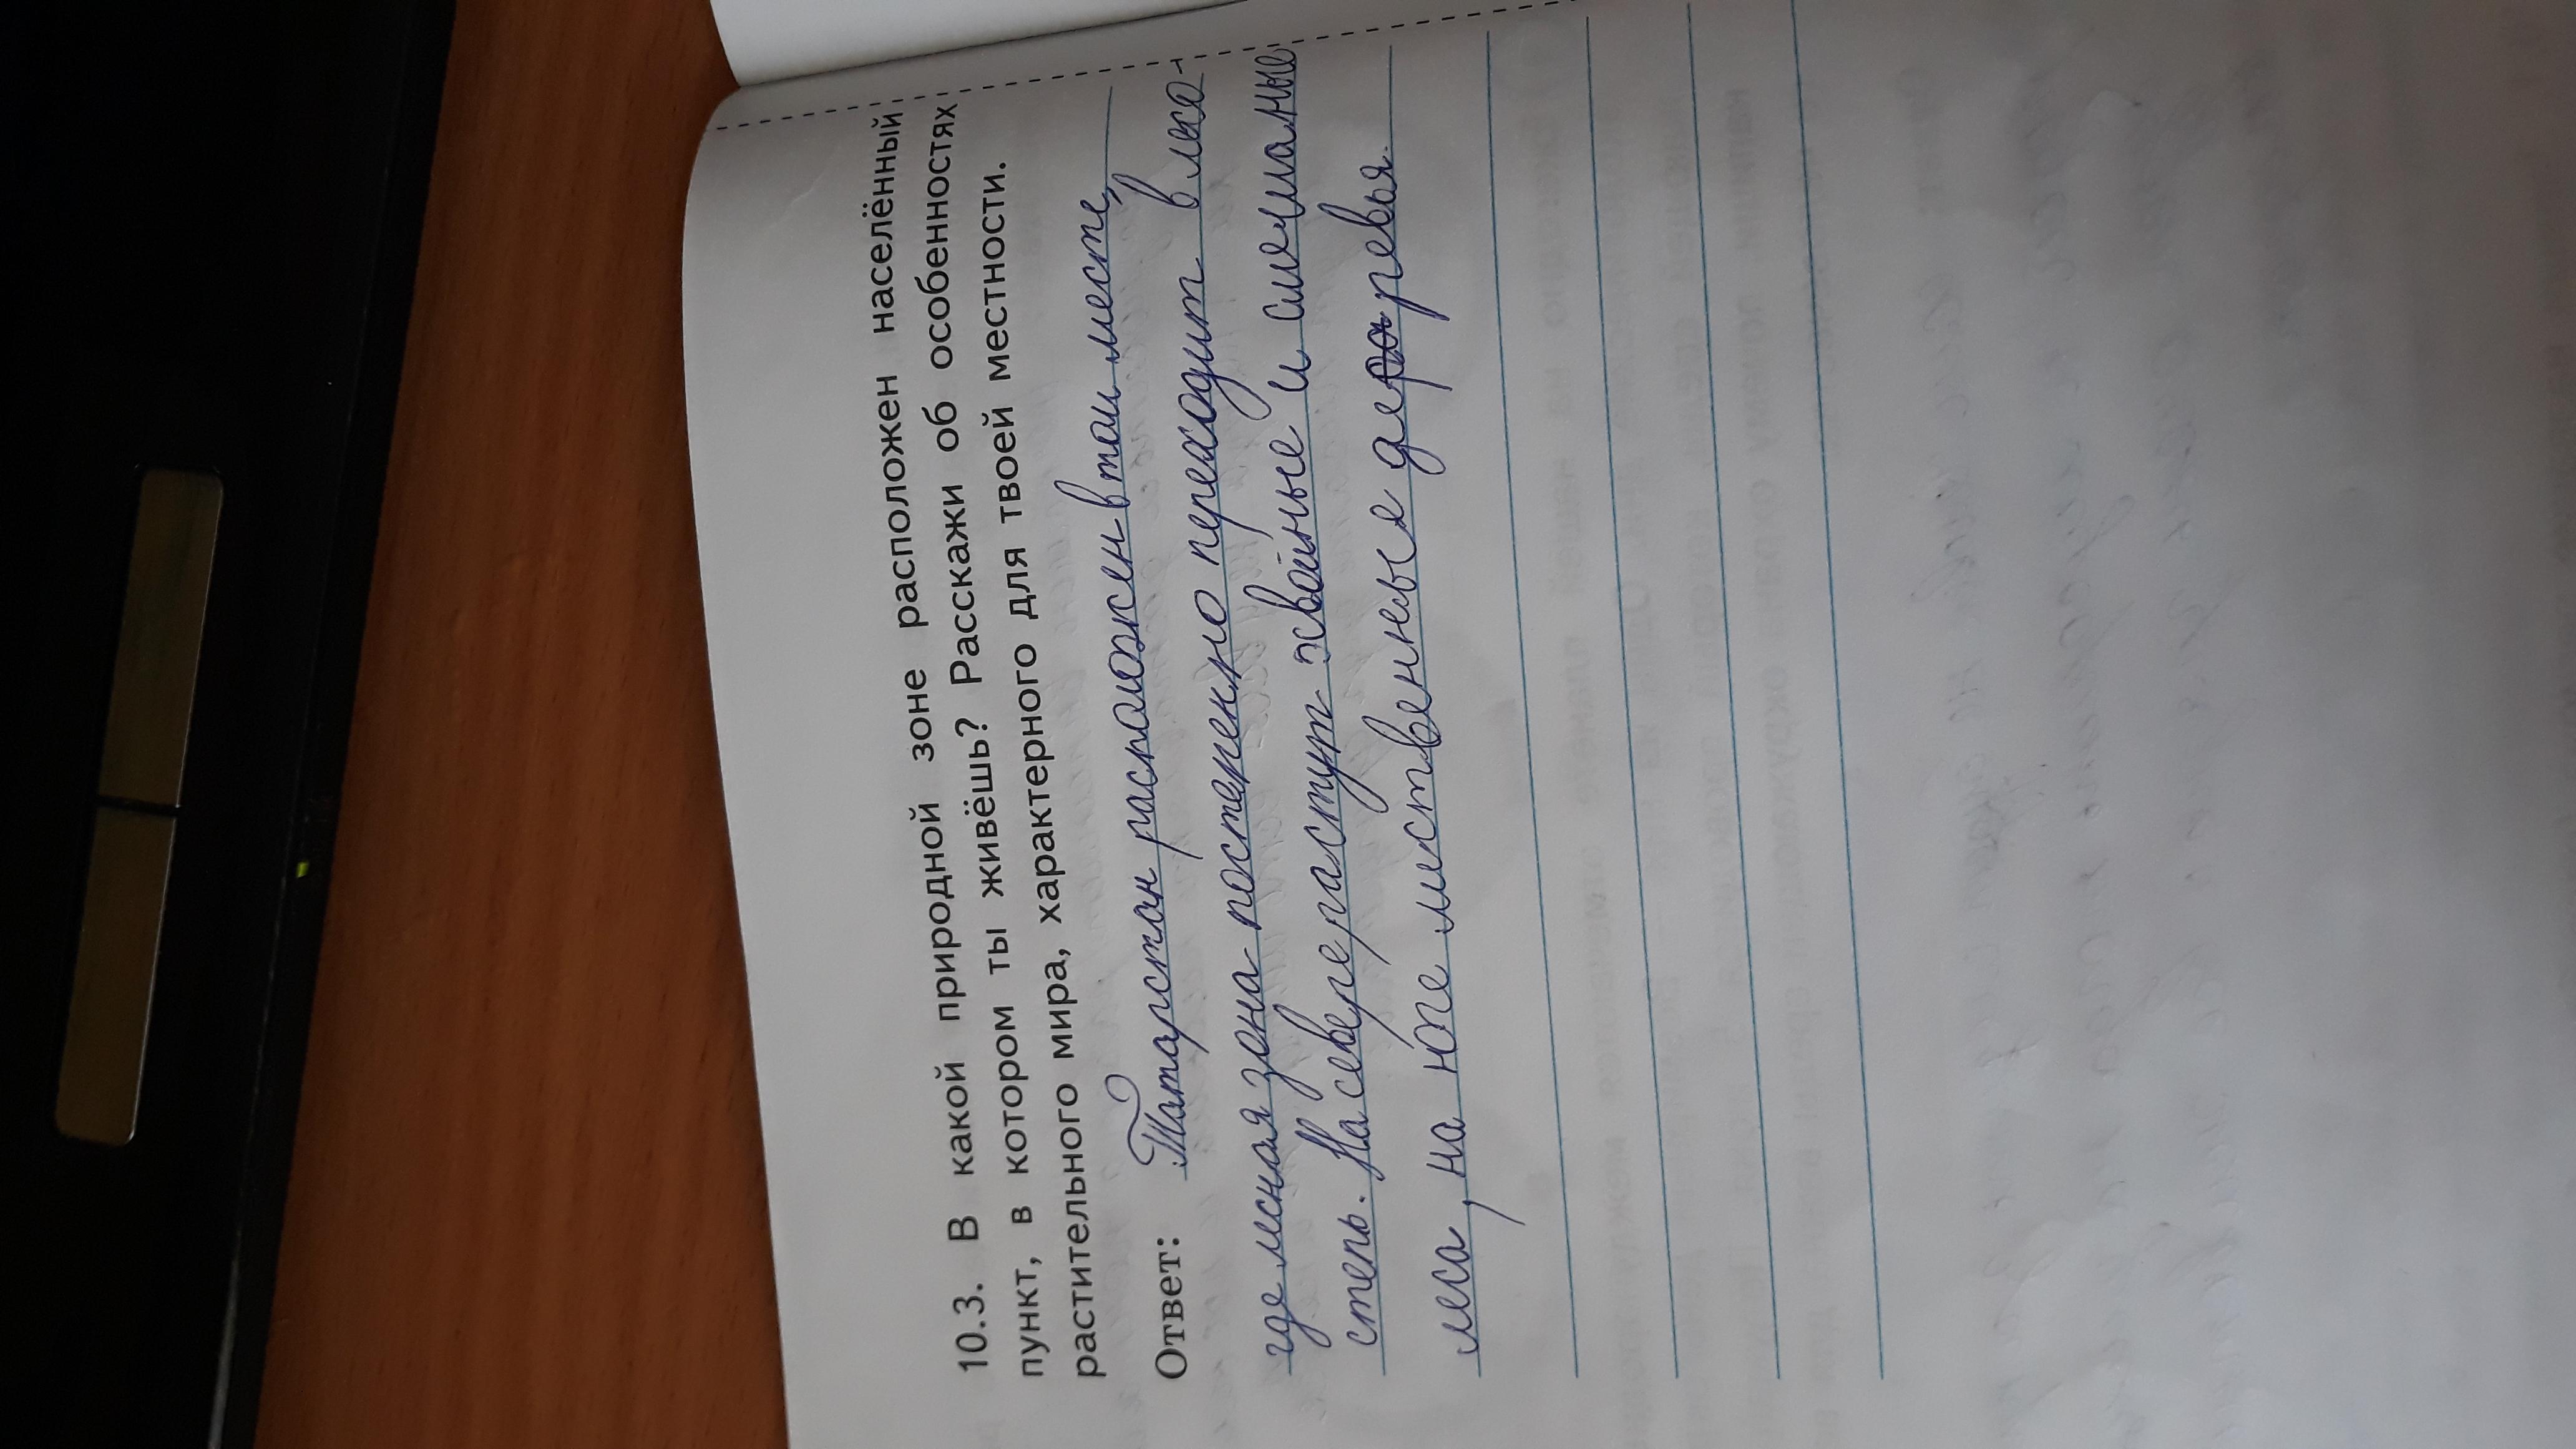 10.3. В какой природной зоне расположен населённый
пункт, в котором ты живёшь? Расскажи об особенностях
растительного мира, характерного для твоей местности.
Ответ: Татарстан расположен в том месте,
где лесная зона постепенно переходит в лесо-
степь. На севере растут хвойные и смешаные
леса, на юге лиственные деревья.